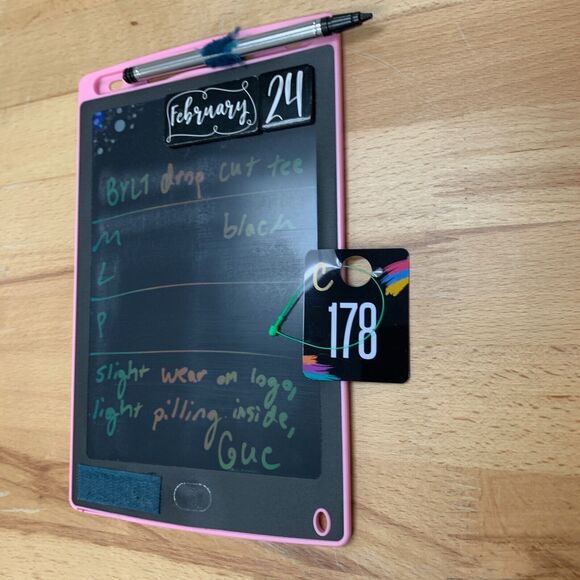 February 24
BYLT drop cut tee
M black
L
P
C
178
slight wear on logo,
light pilling inside,
GUC